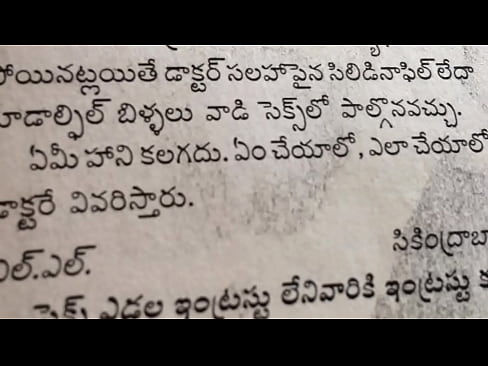 పోయినట్లయితే డాక్టర్ సలహాపైన సిలిడినాఫిల్ లేదా
టాడాల్ఫిల్ బిళ్ళలు వాడి సెక్స్‌లో పాల్గొనవచ్చు.
ఏమీ హాని కలగదు. ఏం చేయాలో, ఎలా చేయాలో
డాక్టరే వివరిస్తారు.
ఎల్.ఎల్. సికింద్రాబా
సెక్స్ ఎడల ఇంట్రస్టు లేనివారికి ఇంట్రస్టు క